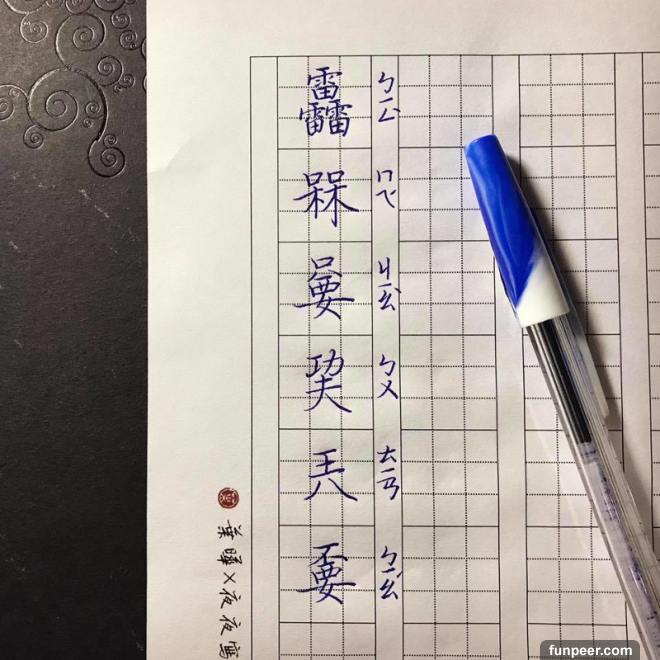 靐 ㄅㄧㄥˋ
槑 ㄇㄟˊ
嘦 ㄐㄧㄠˋ
巭 ㄅㄨ
兲 ㄊㄧㄢ
嫑 ㄅㄧㄠˊ
葉曄X夜夜寫
funpeer.com